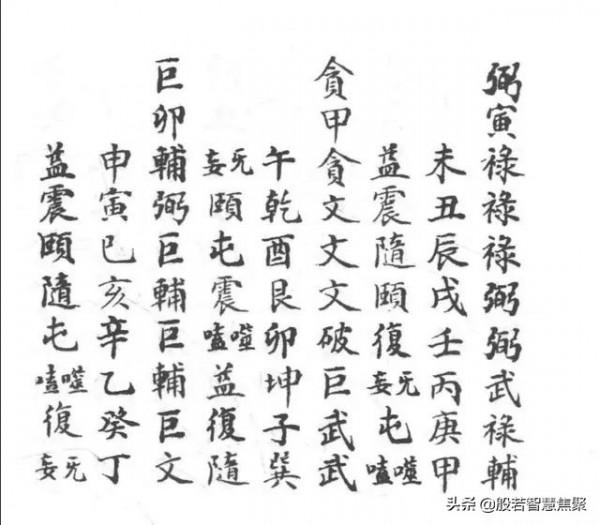 弼寅祿祿祿弼弼武祿輔
未丑辰戌壬丙庚甲
益震隨頤復无妄屯噬嗑
貪甲貪文文文破巨武武
午乾酉艮卯坤子巽
无妄頤屯震噬嗑益復隨
巨卯輔弼巨輔巨輔巨文
申寅巳亥辛乙癸丁
益震頤隨屯噬嗑復无妄
头条 @般若智慧焦聚